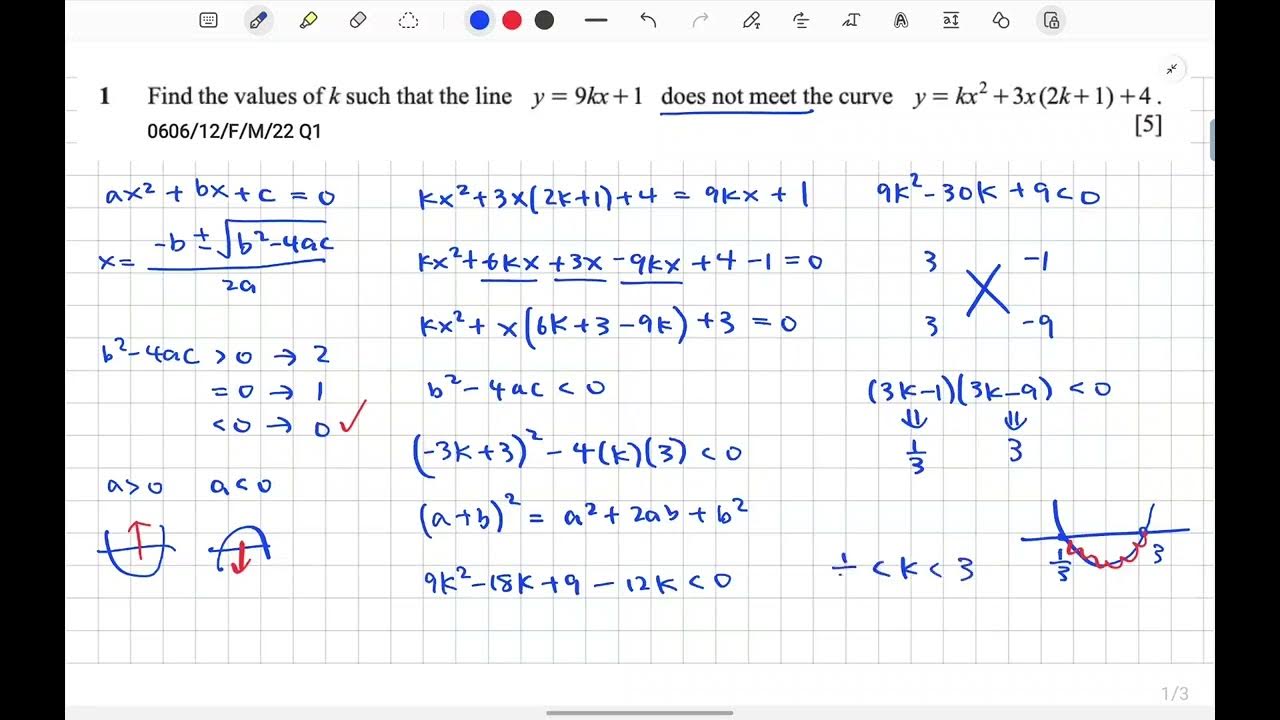 1 Find the values of k such that the line y = 9kx + 1 does not meet the curve y = kx² + 3x(2k + 1) + 4.
0606/12/F/M/22 Q1
[5]
ax² + bx + c = 0
x = (-b ± √(b² - 4ac)) / 2a
b² - 4ac > 0 → 2
= 0 → 1
< 0 → 0 ✓
a > 0 a < 0
kx² + 3x(2k+1) + 4 = 9kx + 1
kx² + 6kx + 3x - 9kx + 4 - 1 = 0
kx² + x(6k + 3 - 9k) + 3 = 0
b² - 4ac < 0
(-3k + 3)² - 4(k)(3) < 0
(a + b)² = a² + 2ab + b²
9k² - 18k + 9 - 12k < 0
9k² - 30k + 9 < 0
3 -1
3 -9
(3k - 1)(3k - 9) < 0
⇓ ⇓
1/3 3
1/3 3
1/ < k < 3
1/3